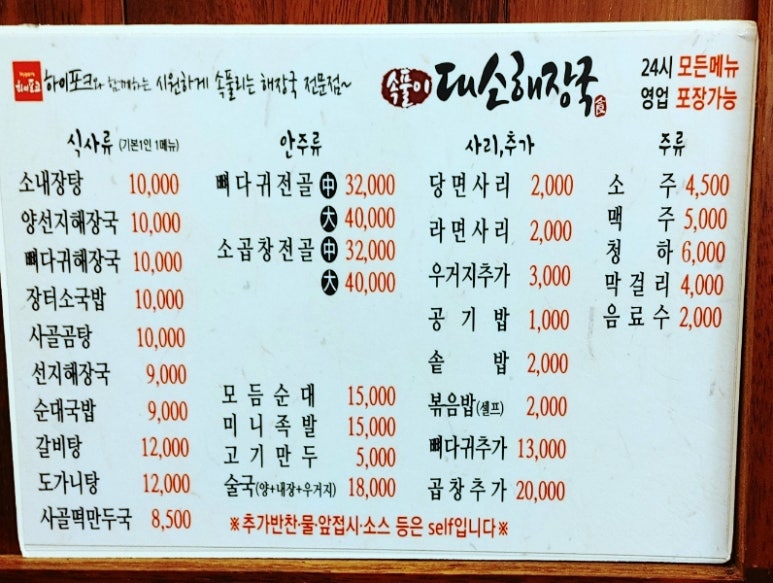 하이포크
하이포크와 함께하는 시원하게 속풀리는 해장국 전문점~
속풀이 대소해장국 食
24시 모든메뉴
영업 포장가능
식사류 (기본1인 1메뉴)
소내장탕 10,000
양선지해장국 10,000
뼈다귀해장국 10,000
장터소국밥 10,000
사골곰탕 10,000
선지해장국 9,000
순대국밥 9,000
갈비탕 12,000
도가니탕 12,000
사골떡만두국 8,500
안주류
뼈다귀전골 中 32,000
大 40,000
소곱창전골 中 32,000
大 40,000
모듬순대 15,000
미니족발 15,000
고기만두 5,000
술국(양+내장+우거지) 18,000
사리,추가
당면사리 2,000
라면사리 2,000
우거지추가 3,000
공기밥 1,000
솥밥 2,000
볶음밥(셀프) 2,000
뼈다귀추가 13,000
곱창추가 20,000
주류
소주 4,500
맥주 5,000
청하 6,000
막걸리 4,000
음료수 2,000
※추가반찬·물·앞접시·소스 등은 self입니다※